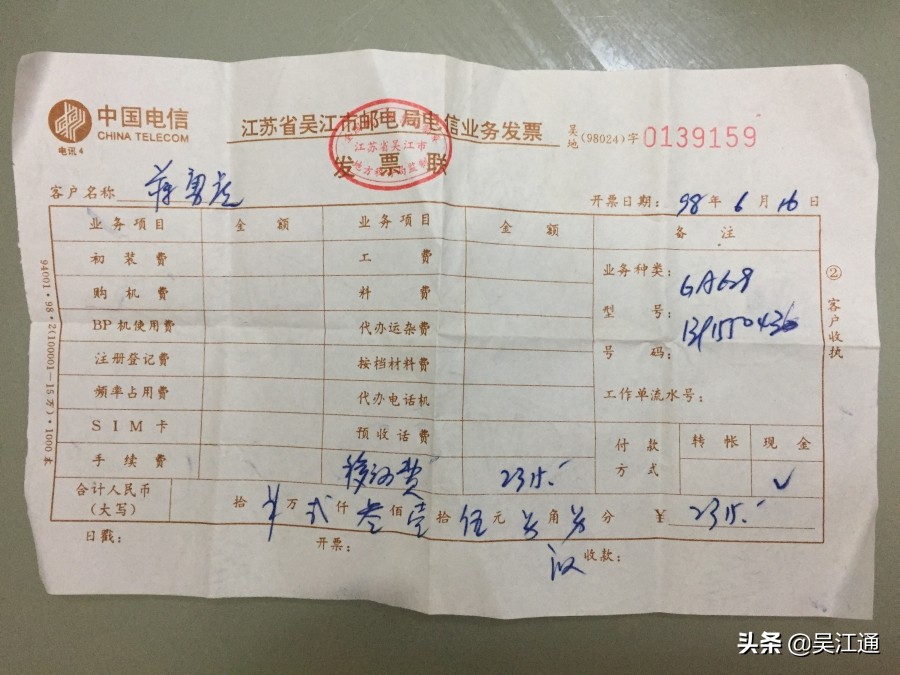 中国电信
CHINA TELECOM
电讯 4
江苏省吴江市邮电局电信业务发票
吴地(98024)字 0139159
江苏省吴江市
发票联
客户名称
开票日期: 98 年 6 月 16 日
业务项目 金额 业务项目 金额 备注
初装费 工费 业务种类:
购机费 料费 型号: GA628
BP机使用费 代办运杂费 号码:
注册登记费 按档材料费
频率占用费 代办电话机 工作单流水号:
SIM卡 预收话费 付款方式 转帐 现金
手续费 2315.- ✓
合计人民币(大写) 拾 万 弍 仟 叁 佰 壹 拾 伍 元 角 分 ¥ 2315.-
日戳: 开票: 收款:
② 客户收执
94001·98·2(100001—15万)·1000本
头条 @吴江通